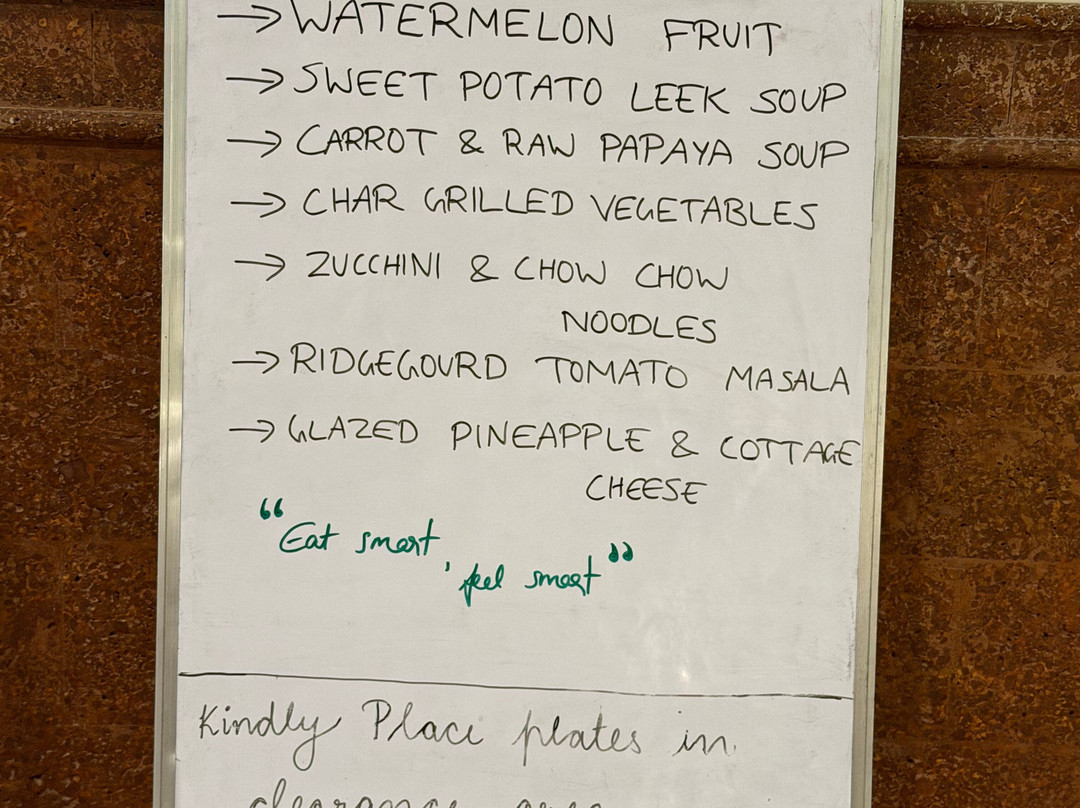 → WATERMELON FRUIT
→ SWEET POTATO LEEK SOUP
→ CARROT & RAW PAPAYA SOUP
→ CHAR GRILLED VEGETABLES
→ ZUCCHINI & CHOW CHOW
NOODLES
→ RIDGEGOURD TOMATO MASALA
→ GLAZED PINEAPPLE & COTTAGE
CHEESE
“Eat smart
, feel smart”
Kindly Place plates in
clearance